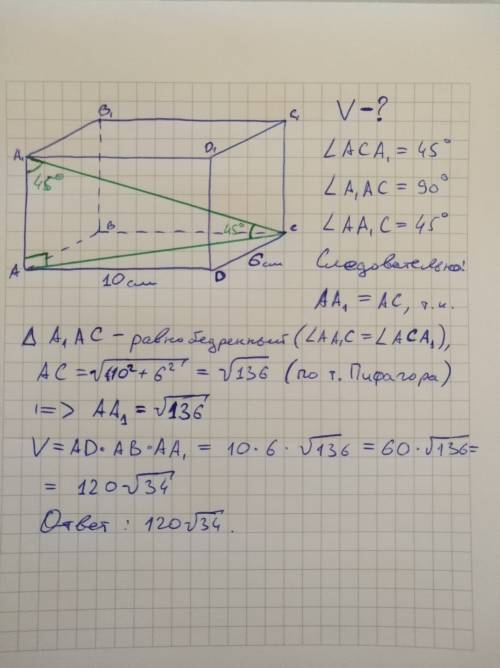 B₁
C₁
A₁
D₁
45°
B
45°
C
A
D
10 см
6 см
V - ?
∠ACA₁ = 45°
∠A₁AC = 90°
∠AA₁C = 45°
Следовательно:
AA₁ = AC, т.к.
Δ A₁AC – равнобедренный (∠AA₁C = ∠ACA₁),
AC = √(10² + 6²) = √136 (по т. Пифагора)
=> AA₁ = √136
V = AD · AB · AA₁ = 10 · 6 · √136 = 60 · √136 =
= 120√34
Ответ: 120√34.